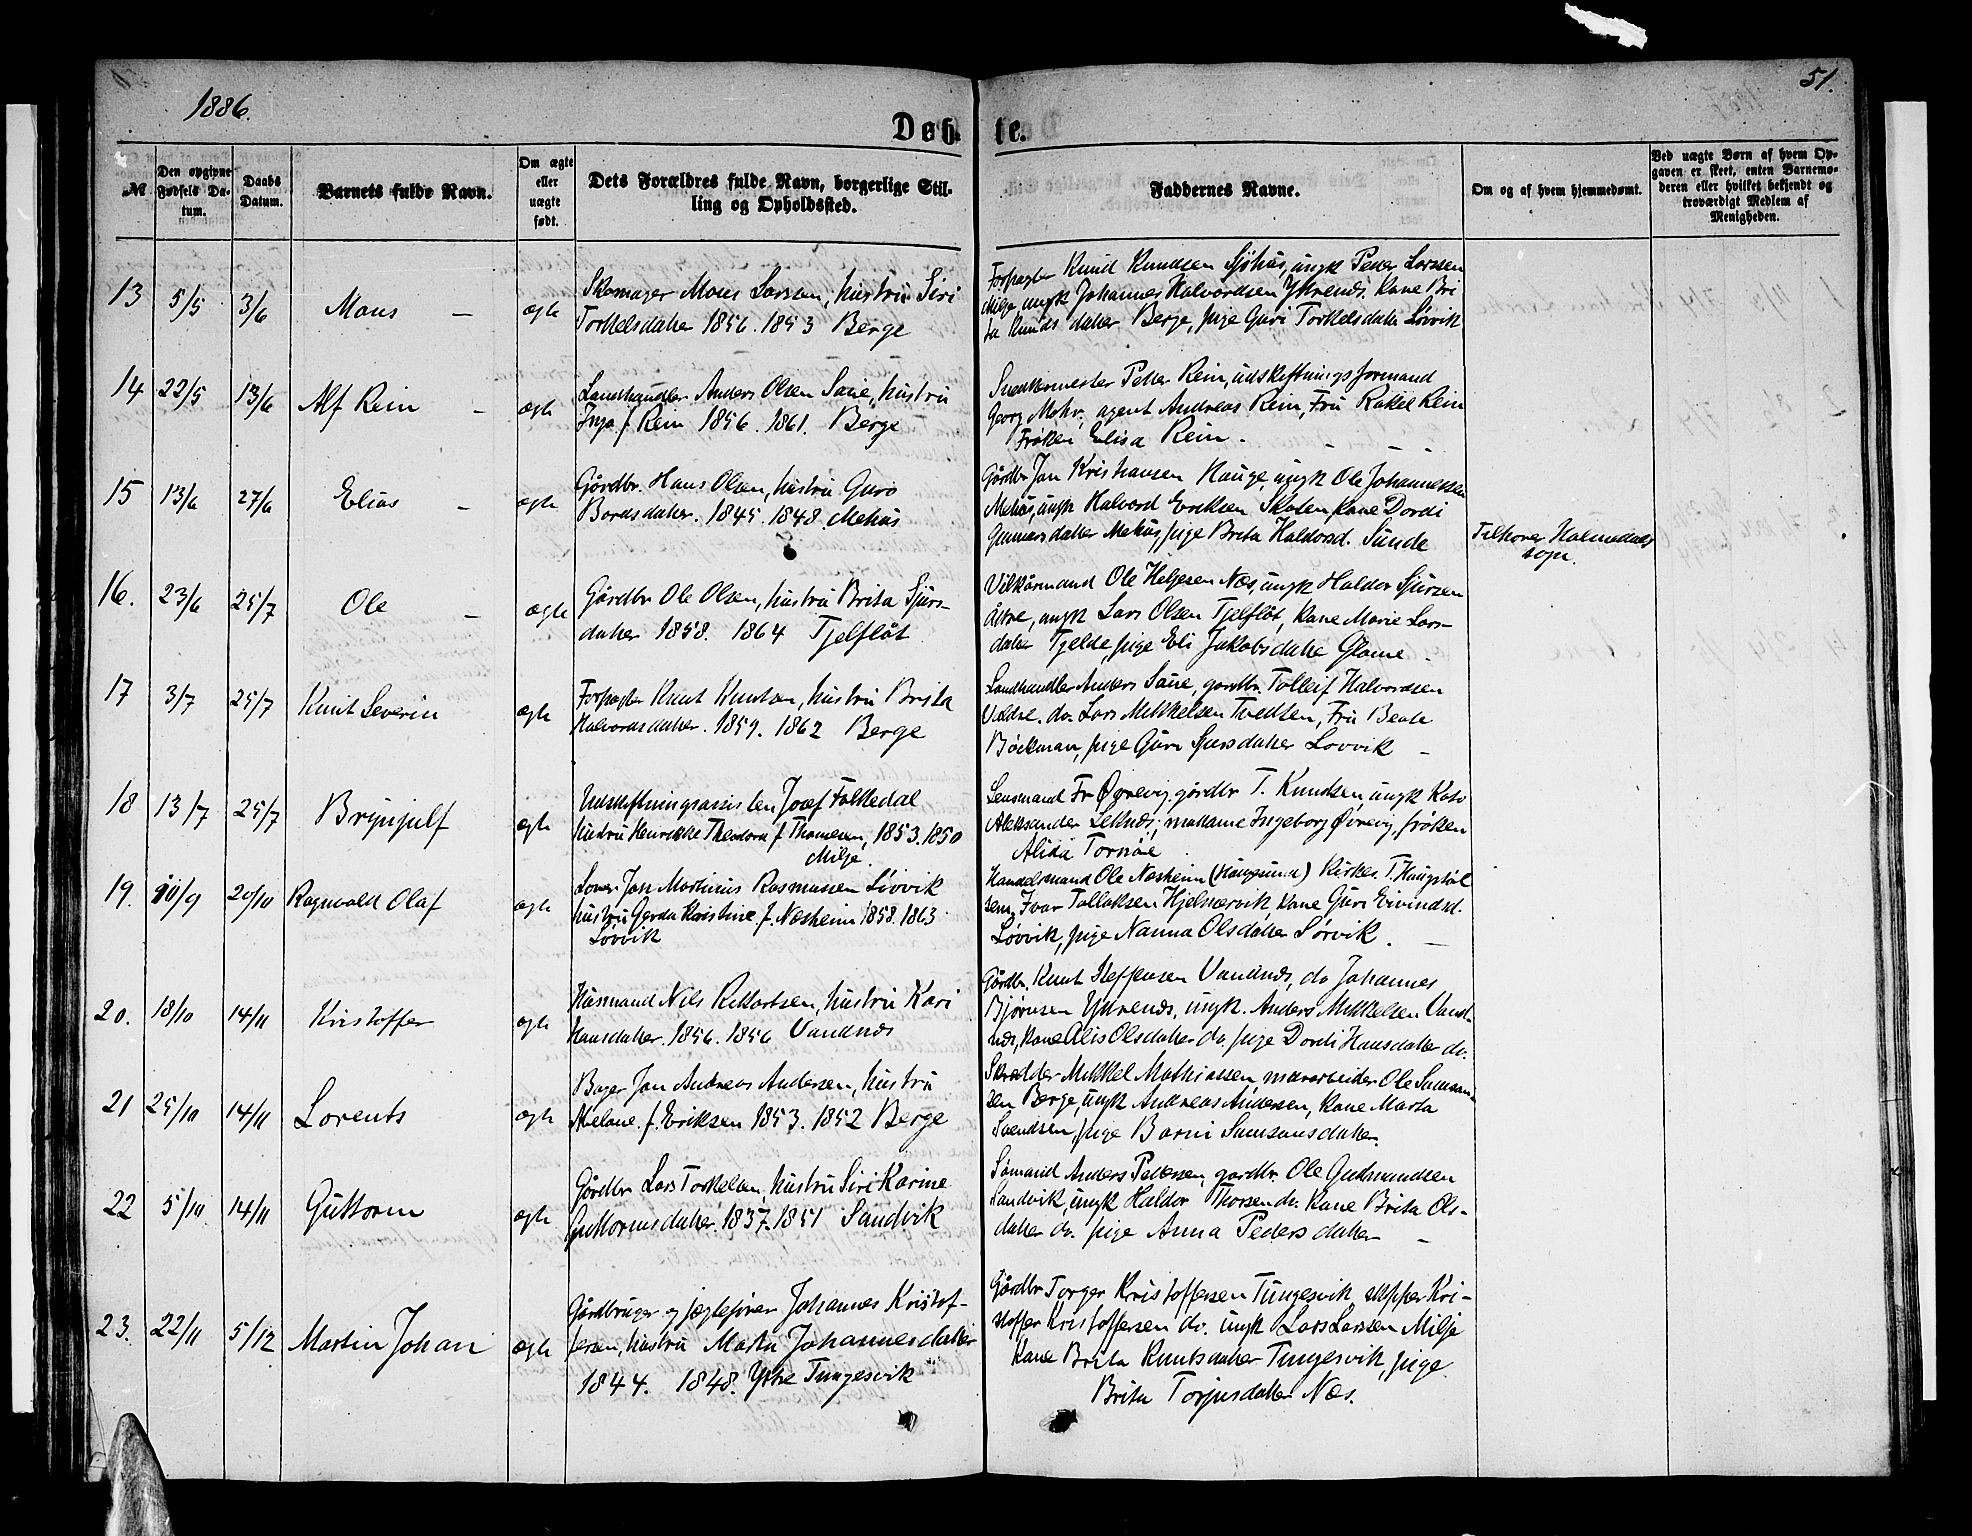 1886.
51.
Døb-
te.
№
Den opgivne Fødsels Datum.
Daabs Datum.
Barnets fulde Navn.
Om ægte eller uægte født.
Dets Forældres fulde Navn, borgerlige Stilling og Opholdssted.
Faddernes Navne.
Om og af hvem hjemmedømt.
Ved uægte Børn af hvem Opgaven er skeet, enten Barnemoderen eller hvilket bekjendt og troværdigt Medlem af Menigheden.
13 5/5 3/6 Mons — ægte
Skomager Mons Larssen, hustru Siri
Torkelsdatter 1856. 1853 Berge
Forpagter Knud Knudsen Sjøhus, ungk Peder Larssen
Milje, ungk Johannes Halvordsen Ytrenes. Kone Bri
ta Knudsdatter Berge, pige Guri Torkelsdatter Løvvik
14 22/5 13/6 Alf Rein — ægte
Landhandler Anders Olsen Saue, hustru
Inga f. Rein 1856. 1861. Berge
Snedkermester Peter Rein, udskiftningsformand
Georg Mohr, agent Andreas Rein, Fru Rakel Rein
Frøken Elisa Rein. — —
15 13/6 27/6 Elias — ægte
Gårdbr. Hans Olsen, hustru Guro
Bårdsdatter. 1845. 1848. Mehus
Gårdbr Jan Kristiansen Hauge, ungk Ole Johannessen
Mehus, ungk Halvord Eriksen Skaten kone Dordi
Gunnarsdatter Mehus, pige Brita Haldorsd. Sunde
Tilhører Holmedals
sogn.
16. 23/6 25/7 Ole — ægte
Gårdbr Ole Olsen, hustru Brita Sjurs-
datter 1858. 1864 Tjelflåt
Vilkårmand Ole Helgesen Næs, ungk Haldor Sjursen
ungk Lars Olsen Tjelflåt, kone Marie Lars-
datter Tjelde, pige Eli Jakobsdatter —
17 3/7 25/7 Knut Severin ægte
Forpagter Knut Knutsen, hustru Brita
Halvordsdatter. 1859. 1862 Berge
Landhandler Anders Saue, gårdbr. Tolleif Halvordsen
do. Lars Mikkelsen Tvedten, Fru Beate
Böckman, pige Guri Sjursdatter Løvvik —
18 13/7 25/7 Brynjulf ægte
Udskiftningsassistent Josef Folkedal
hustru Henrikke Theodora f. Thomesen, 1853. 1850
Milje.
Lensmand Fr Øvrevig, gårdbr T. Knudsen, ungk
Aleksander Leknes, madame Ingeborg Øvrevig, frøken
Alida Tornøe
19. 10/9 20/10 Ragnvald Olaf ægte
Jan Martinus Rasmussen Løvvik
hustru Gerda Kristine f. Næsheim 1858. 1863
Løvvik
Handelsmand Ole Næsheim (Haugesund) Kirkes. T. Haugstøl
sen, Ivar Tollaksen Hjelmervik, kone Guri Eivindsd.
Løvvik, pige Nanna Olsdatter Sørvik. —
20. 18/10 14/11 Kristoffer ægte
Husmand Nils Rikkartsen, hustru Kari
Hansdatter. 1856. 1856 Vandnes
Gårdbr. Knut Steffensen Vandnes, do Johannes
Bjørnsen Ytrenes, ungk. Anders Mikkelsen Vand-
nes, kone Alis Olsdatter do. pige Dordi Hansdatter do.
21 25/10 14/11 Lorents ægte
Bager Jan Andreas Andersen, hustru
f. Eriksen 1853. 1852 Berge
Skrædder Mikkel Mathiassen, murarbeider Ole Samson-
sen Berge, ungk Andreas Andersen, kone Marta
Svendsen, pige Barni Samsonsdatter.
22 5/10 14/11 Guttorm ægte
Gårdbr Lars Torkelsen, hustru Siri Karine
Guttormsdatter 1837. 1851 Sandvik
Sømand Anders Pedersen, gårdbr. Ole Gudmundsen
Sandvik, ungk Haldor Thorsen do. kone Brita Ols-
datter do. pige Anna Pedersdatter —
23. 22/11 5/12 Martin Johan ægte
Gårdbruger og jægtefører Johannes Kristof-
fersen, hustru Marta Johannesdatter
1844. 1848. Ytre Tungesvik
Gårdbr Torger Kristoffersen Tungesvik skipper Kri-
stoffer Kristoffersen do. ungk Lars Larssen Milje
kone Brita Knutsdatter Tungesvik, pige
Brita Torjusdatter Næs.